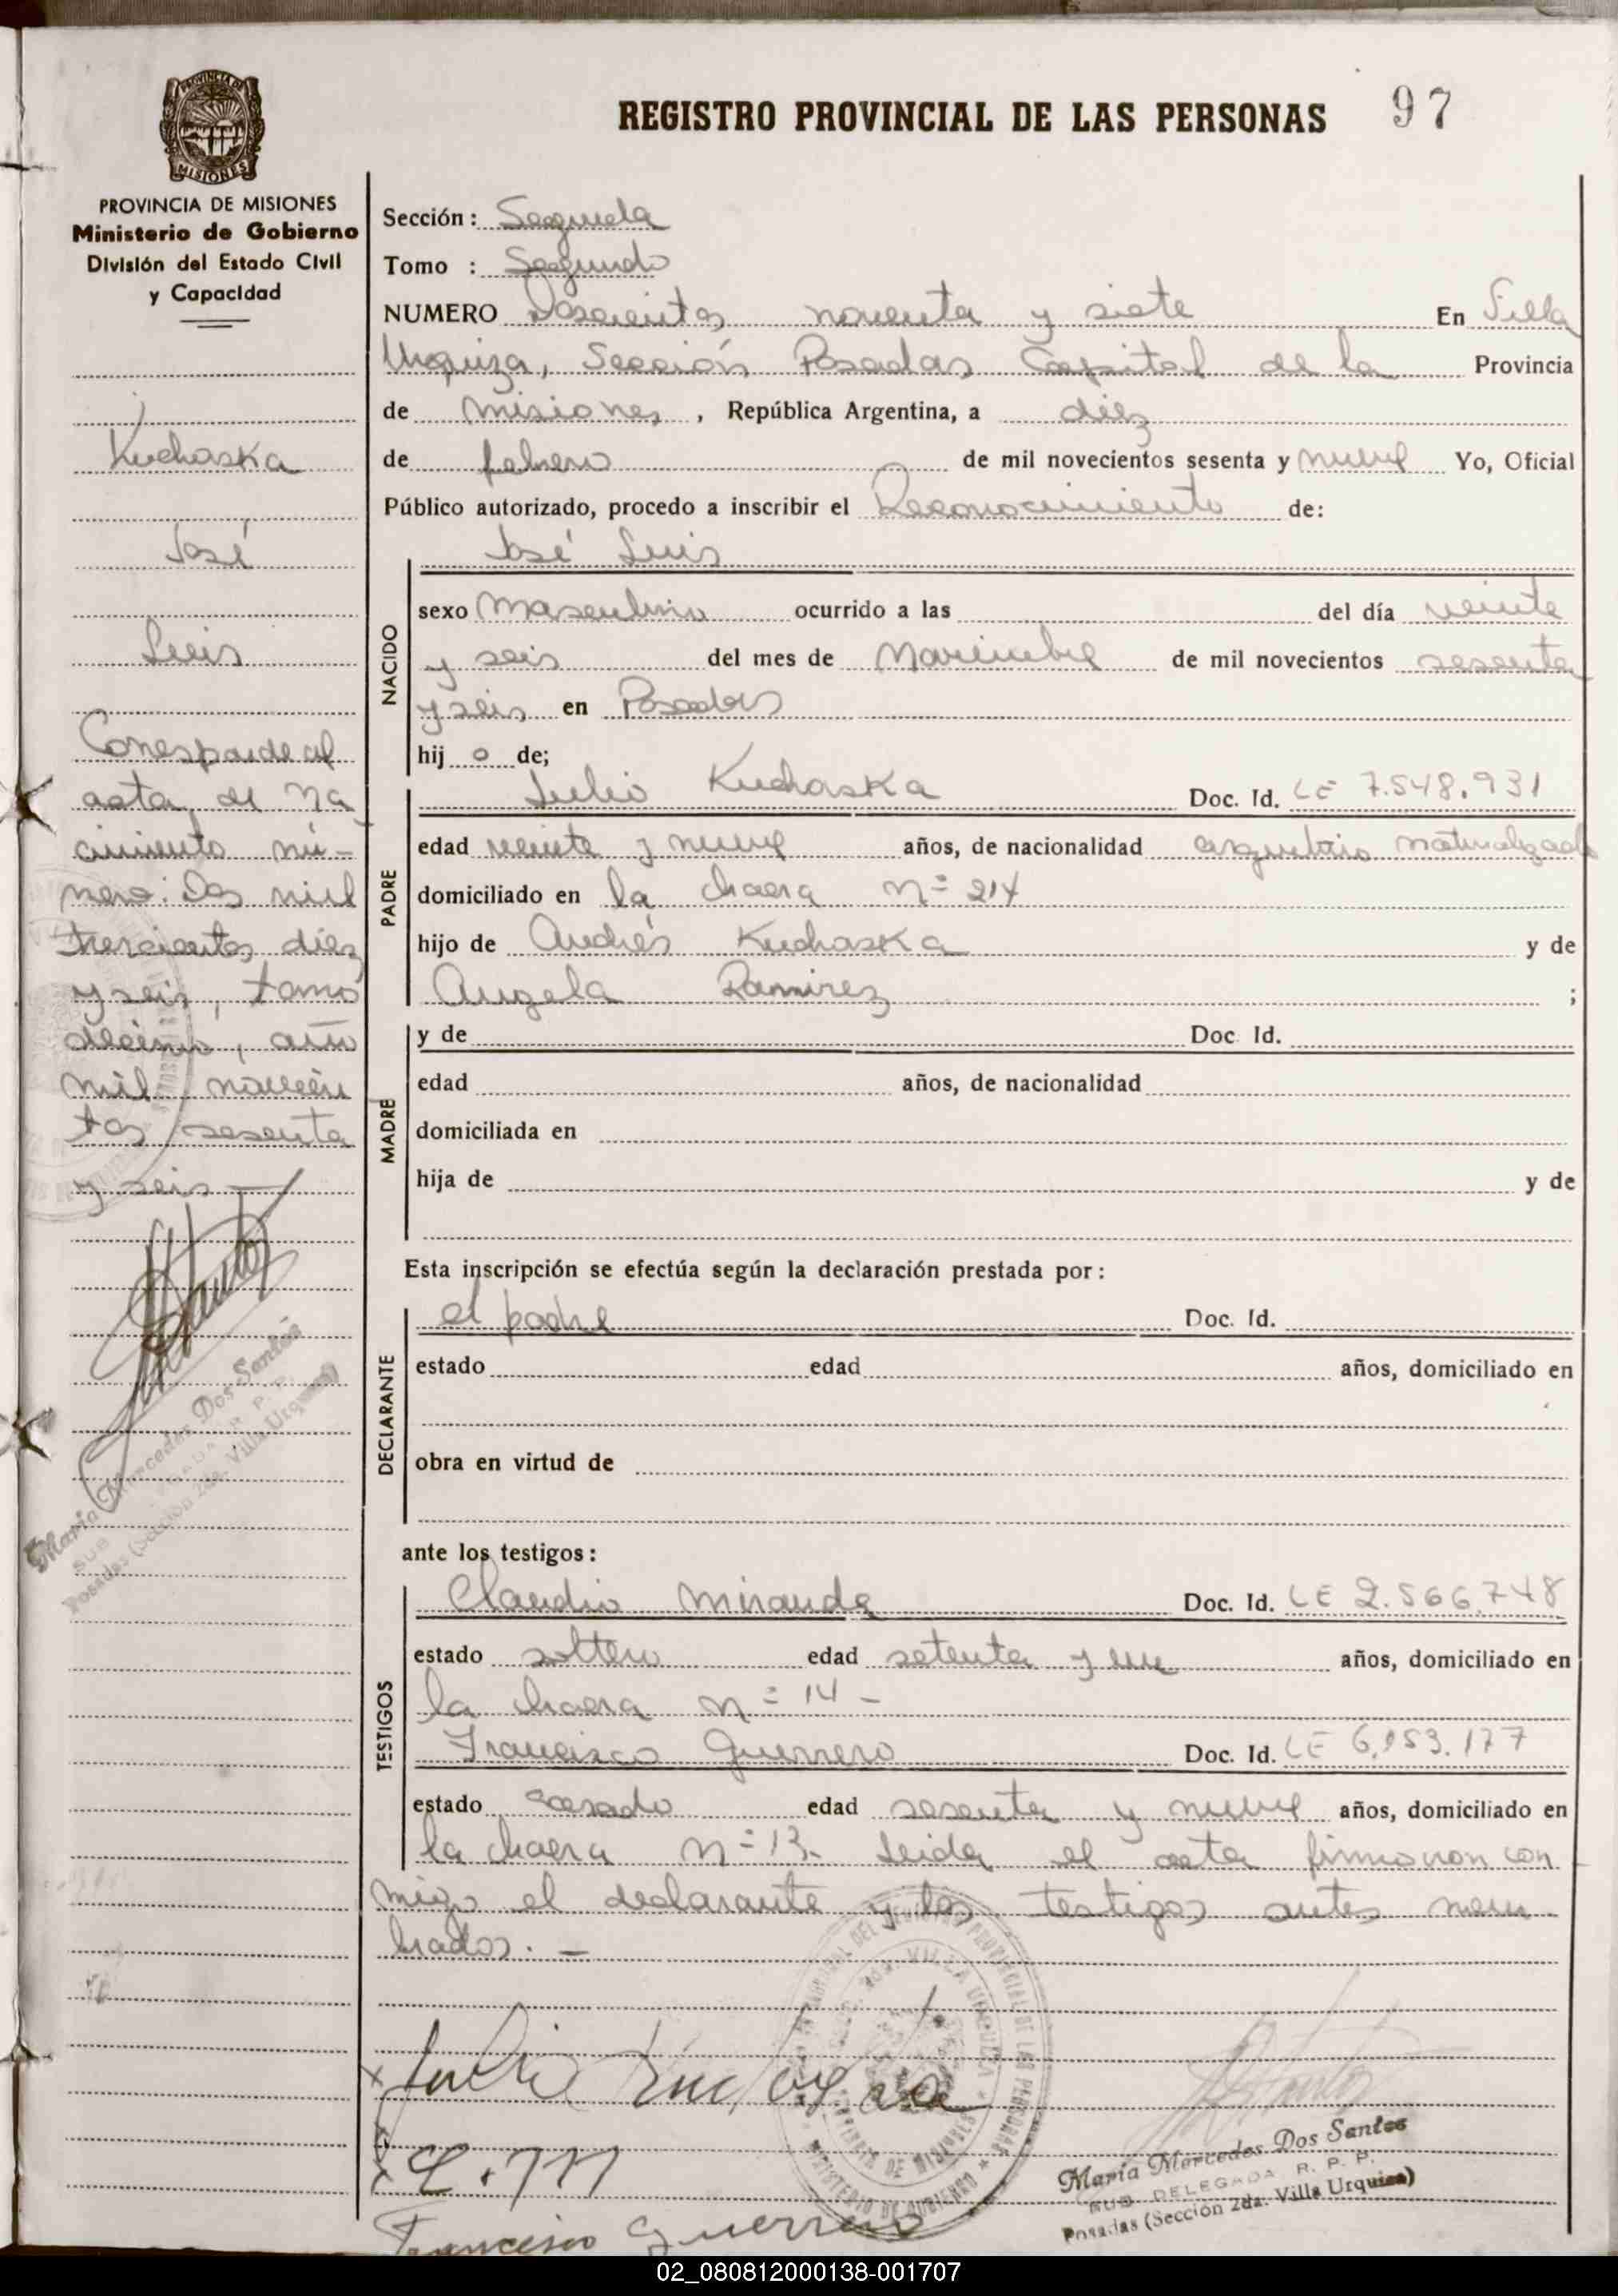 REGISTRO PROVINCIAL DE LAS PERSONAS 97
PROVINCIA DE MISIONES
MISIONES
PROVINCIA DE MISIONES
Ministerio de Gobierno
División del Estado Civil
y Capacidad
Kuchaska
José
Luis
Corresponde al
acta de na
cimiento nú-
mero: Dos mil
trescientos diez
y seis, tomo
décimo, año
mil novecien
tos sesenta
y seis
María Mercedes Dos Santos
Posadas (Sección 2da. Villa Urquiza)
Sección: Segunda
Tomo : Segundo
NUMERO Doscientos noventa y siete En Villa
Urquiza, Sección Posadas Capital de la Provincia
de Misiones, República Argentina, a diez
de febrero de mil novecientos sesenta y nueve Yo, Oficial
Público autorizado, procedo a inscribir el Reconocimiento de:
José Luis
NACIDO
sexo Masculino ocurrido a las del día veinte
y seis del mes de Noviembre de mil novecientos sesenta
y seis en Posadas
hij o de;
PADRE
Julio Kuchaska Doc. Id. LE 7.548.931
edad veinte y nueve años, de nacionalidad argentino naturalizado
domiciliado en la chacra nº 214
hijo de Andrés Kuchaska y de
Angela Ramirez ;
MADRE
y de Doc. Id.
edad años, de nacionalidad
domiciliada en
hija de y de
Esta inscripción se efectúa según la declaración prestada por:
DECLARANTE
el padre Doc. Id.
estado edad años, domiciliado en
obra en virtud de
ante los testigos:
TESTIGOS
Claudio Miranda Doc. Id. LE 2.566.748
estado soltero edad setenta y un años, domiciliado en
la chacra nº 14 -
Francisco Guerrero Doc. Id. LE 6.153.177
estado casado edad sesenta y nueve años, domiciliado en
la chacra nº 13. Leida el acta firmaron con
migo el declarante y los testigos antes nom
brados. -
C. M
Francisco Guerrero
María Mercedes Dos Santos
SUB DELEGADA R. P. P.
Posadas (Sección 2da. Villa Urquiza)
02_080812000138-001707